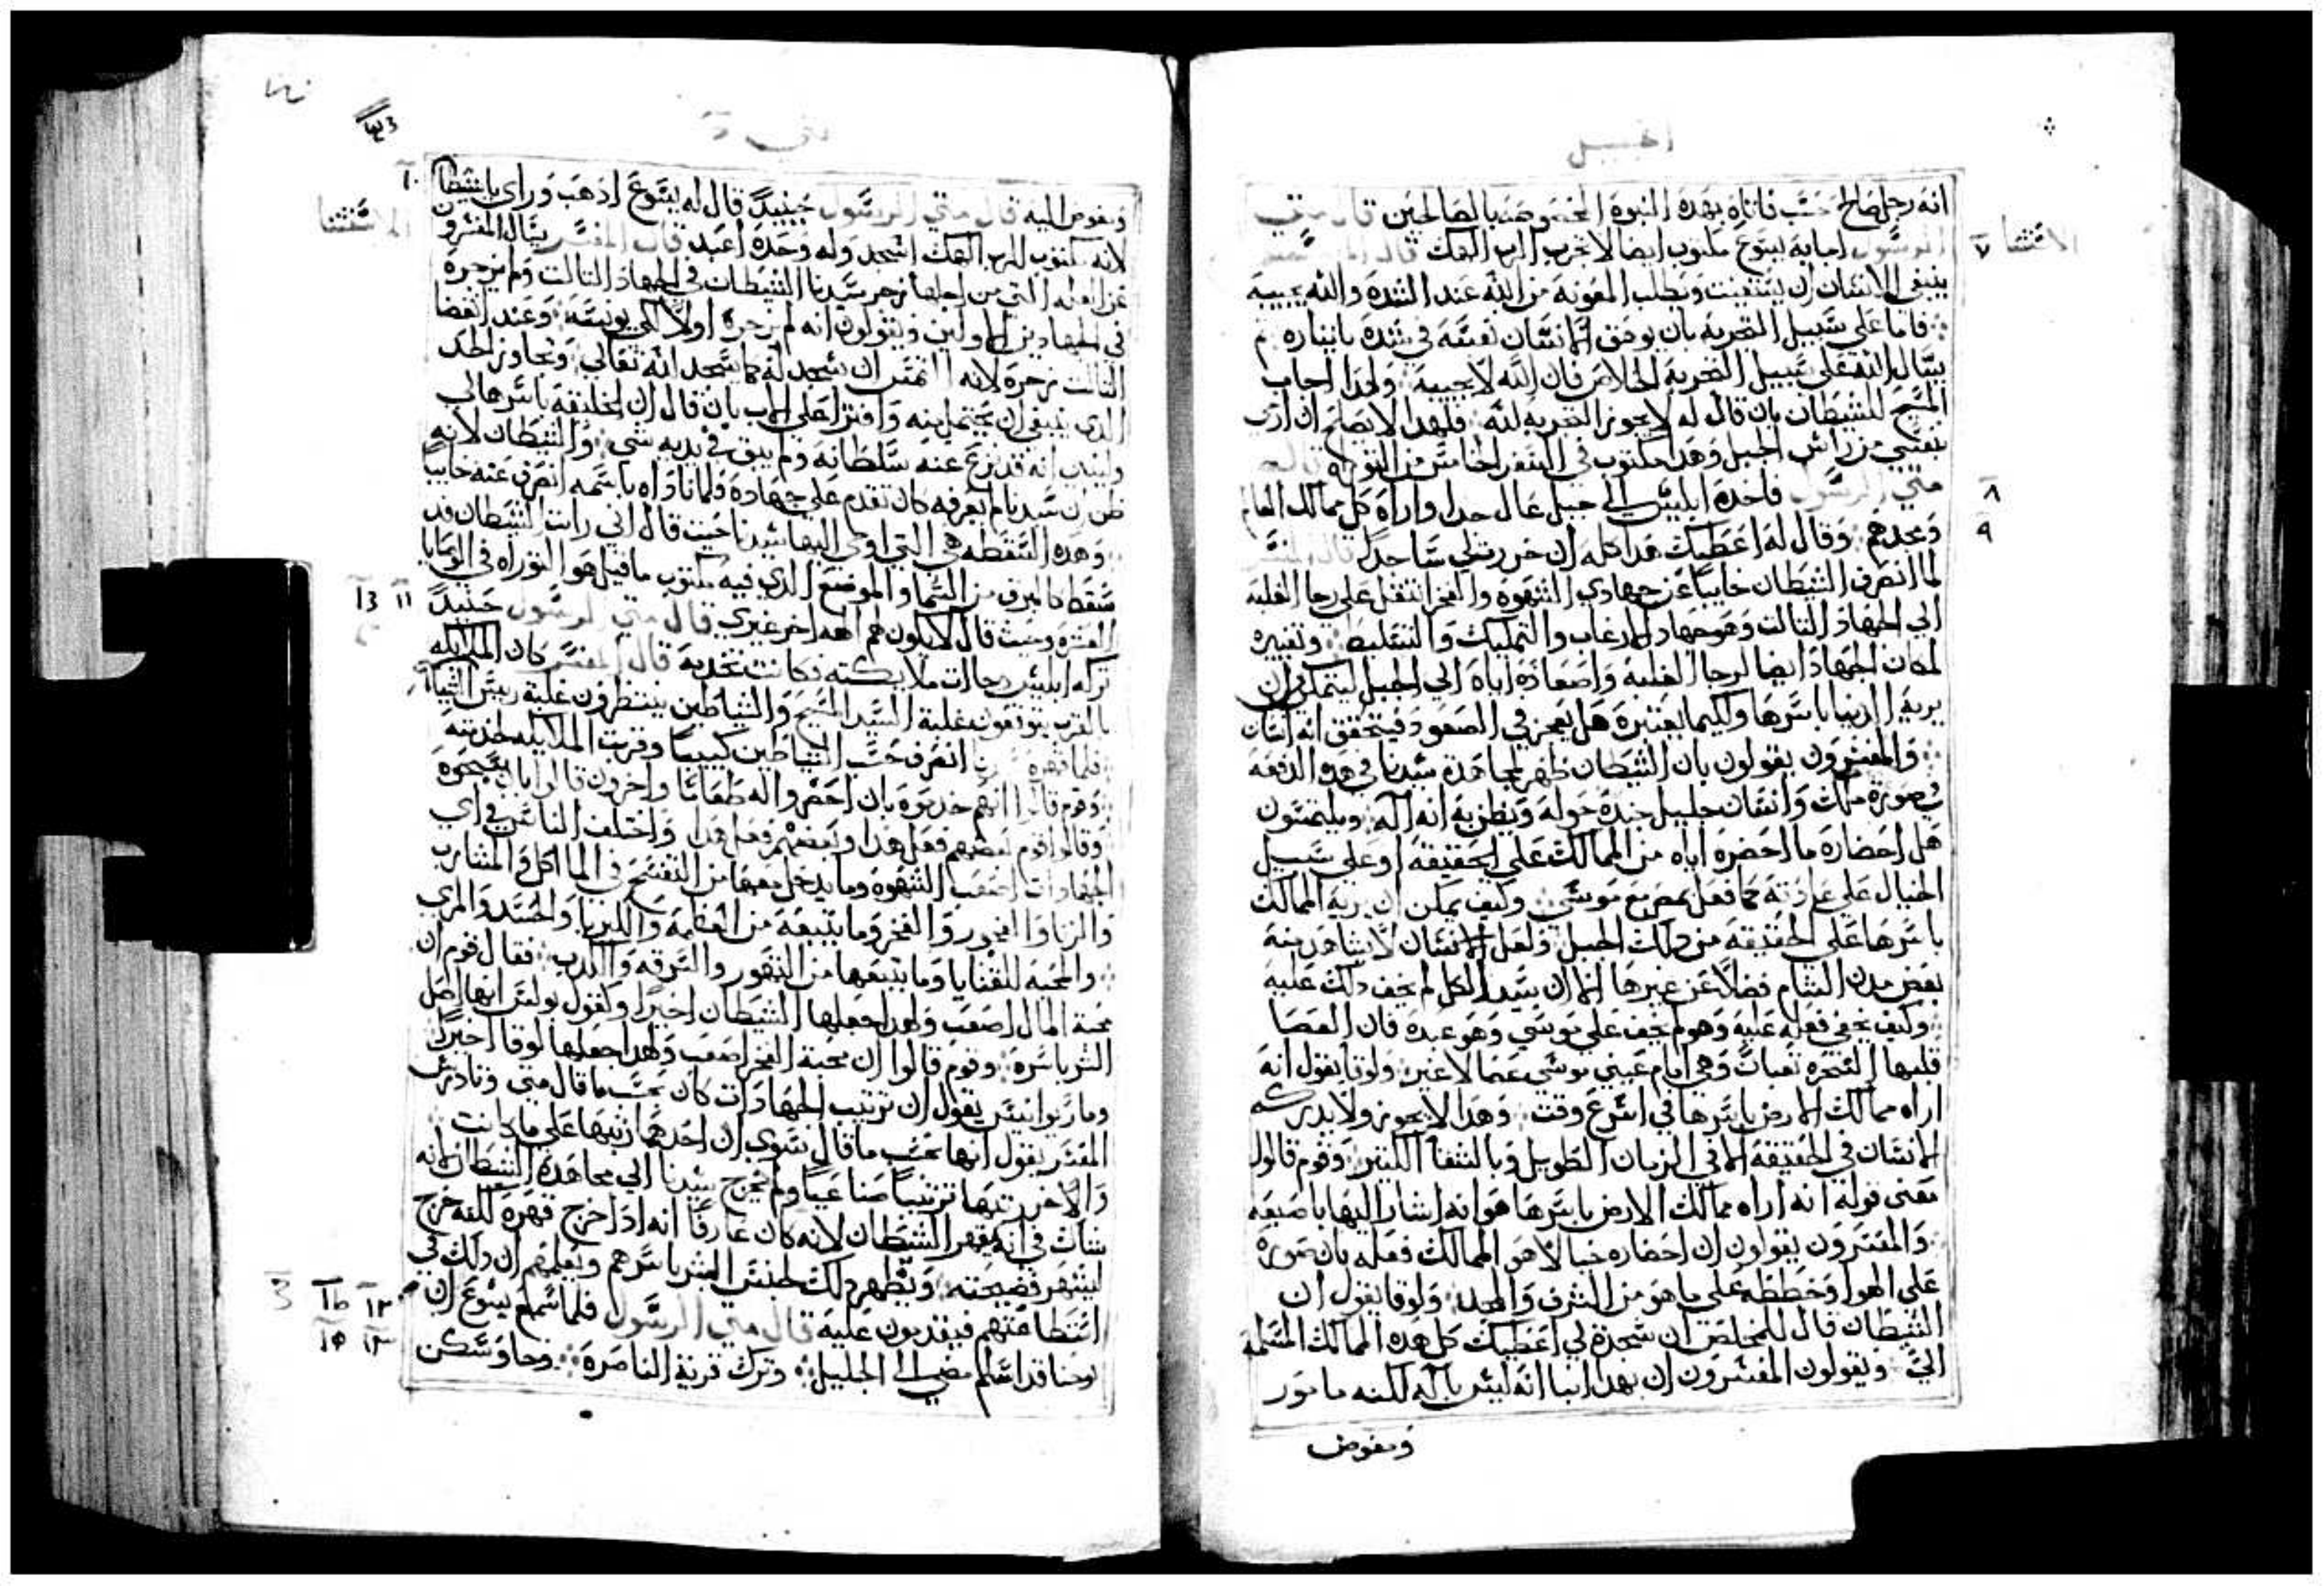 انجيل
انه رجل صالح حسب فاتاه بهذه النبوة المخصوصة بالصالحين قال متي
الرسول اجابه يسوع مكتوب ايضا لا تجرب الرب الهك قال المفسر
ينبغي للانسان ان يستغيث ويطلب المعونة من الله عند الشدة والله يجيبه
فاما على سبيل التجربه بان يوقع الانسان نفسه في شدة باختياره ثم
يسال الله على سبيل التجربه الخلاص فان الله لا يجيبه ولهذا اجاب
المسيح للشيطان بان قال له لا يجوز التجربه لله فلهذا لا يصلح ان ازج
بنفسي من راس الجبل وهذا مكتوب في السفر الخامس من التوراه قال
متي الرسول فاخذه ابليس الي جبل عال جدا واراه كل ممالك العالم
ومجدهم وقال له اعطيك هذا كله ان خررت لي ساجدا قال المفسر
لما انصرف الشيطان خايبا عن جهادي الشهوة والفخر انتقل على رجا الغلبه
الي الجهاد الثالث وهو جهاد الارغاب والتمليك والتسليط وتغييره
لمكان الجهاد ايضا لرجا الغلبه واصعاده اياه الي الجبل ليتمكن من ان
يريه الدنيا باسرها ولكيما يعتبره هل يعجز في الصعود فيتحقق انه انسان
والمفسرون يقولون بان الشيطان ظهر لمجاهدة سيدنا في هذه الدفعه
في صورة ملك وانسان جليل جنده حوله ويظن به انه اله ويلتمسون
هل احضاره ما احضره اياه من الممالك على الحقيقه او على سبيل
الخيال على عادته كما فعل بمصر مع موسي وكيف يمكن ان يريه الممالك
باسرها على الحقيقه من ذلك الجبل ولعل الانسان لا يشاهد منه
بعض مدن الشام فضلا عن غيرها الا ان سيد الكل لم يخف ذلك عليه
وكيف يخفي فعله عليه وهو لم يخف على موسي وهو عبده فان العصا
قلبها السحره ثعبانا وهي امام عيني موسي عصا لا غير ولوقا يقول انه
اراه ممالك الارض باسرها في اسرع وقت وهذا لا يجوز ولا يدركه
الانسان في الحقيقه الا في الزمان الطويل وبالشقا الكثير وقوم قالوا
معني قوله انه اراه ممالك الارض باسرها هو انه اشار اليها باصبعه
والمفسرون يقولون ان احضاره خيالا هو الممالك فعله بان صوره
على الهوا وخططه على ما هو من الشرف والمجد ولوقا يقول ان
الشيطان قال للمخلص ان سجدة لي اعطيك كل هذه الممالك المسلمة
الي ويقولون المفسرون ان بهذا انبا انه ليس باله لكنه مامور
ومفوض
الاستثنا ٧
٨
٩
متي
ومفوض اليه قال متي الرسول حينيد قال له يسوع اذهب وراي يا شيطان
لانه مكتوب للرب الهك اسجد وله وحده اعبد قال المفسر يسال المفسرون
عن العله التي من اجلها زجر سيدنا الشيطان في الجهاد الثالث ولم يزجره
في الجهادين الاولين ويقولون انه لم يزجره اولا لكي يونسه وعند انقضا
الثالث زجره لانه التمس ان يسجد له كما يسجد لله تعالي وتجاوز الحد
الذي ينبغي ان يحتمل منه وافترا على الاب بان قال ان الخليقه باسرها لي
وليبين انه قد نزع عنه سلطانه ولم يبق في يديه شي والشيطان لانه
ظن ان سيدنا لم يعرفه كان تقدم على جهاده ولما ناداه باسمه انصرف عنه خايبا
وهذه السقطه هي التي اوحي اليها سيدنا حيث قال اني رايت الشيطان قد
سقط كالبرق من السما والموضع الذي فيه مكتوب ما قيل هو التوراه في الوصايا
العشره وحيث قال لا يكون لكم اله اخر غيري قال متي الرسول حينيد
تركه ابليس وجات ملايكته فكانت تخدمه قال المفسر كان الملايكه
بالقرب يتوقعون غلبة السيد المسيح والشياطين ينتظرون غلبة رييس الشياطين
فلما قهره ربنا انصرف حزب الشياطين كييبا وقربت الملايكه لخدمته
وقوم قالوا انهم خدموه بان احضروا له طعاما واخرون قالوا بان سبحوه
وقالوا قوم بعضهم فعل هذا وبعضهم فعل هذا واختلف الناس في اي
الجهادات اصعب الشهوه وما يدخل معها من التفسح في الماكل والمشارب
والزنا والفجور والفخر وما يتبعه من العظمه والكبريا والحسد والمري
والمحبه للقنايا وما يتبعها من القهور والسرقه والكذب فقال قوم ان
محبة المال اصعب ولهذا جعلها الشيطان اخيرا وكقول بولس انها اصل
الشر باسره وقوم قالوا ان محبة الفخر اصعب ولهذا جعلها لوقا اخيرا
وماريوانيس يقول ان ترتيب الجهادات كان بحسب ما قال متي وتادرس
المفسر يقول انها بحسب ما قال سوي ان احدهما رتبها على ما كانت
والاخر رتبها ترتيبا صناعيا ولم يخرج سيدنا الي مجاهدة الشيطان لانه
شاك في انه يقهر الشيطان لانه كان عارفا انه اذا خرج قهره لكنه خرج
ليشهر فضيحته ويظهر ذلك لجنس البشر باسرهم ويعلمهم ان ذلك في
استطاعتهم فيقتدون عليه قال متي الرسول فلما سمع يسوع ان
يوحنا قد اسلم مضي الي الجليل وترك قرية الناصرة وجا وسكن
١٠
الاستثنا
١١
١٢
١٣